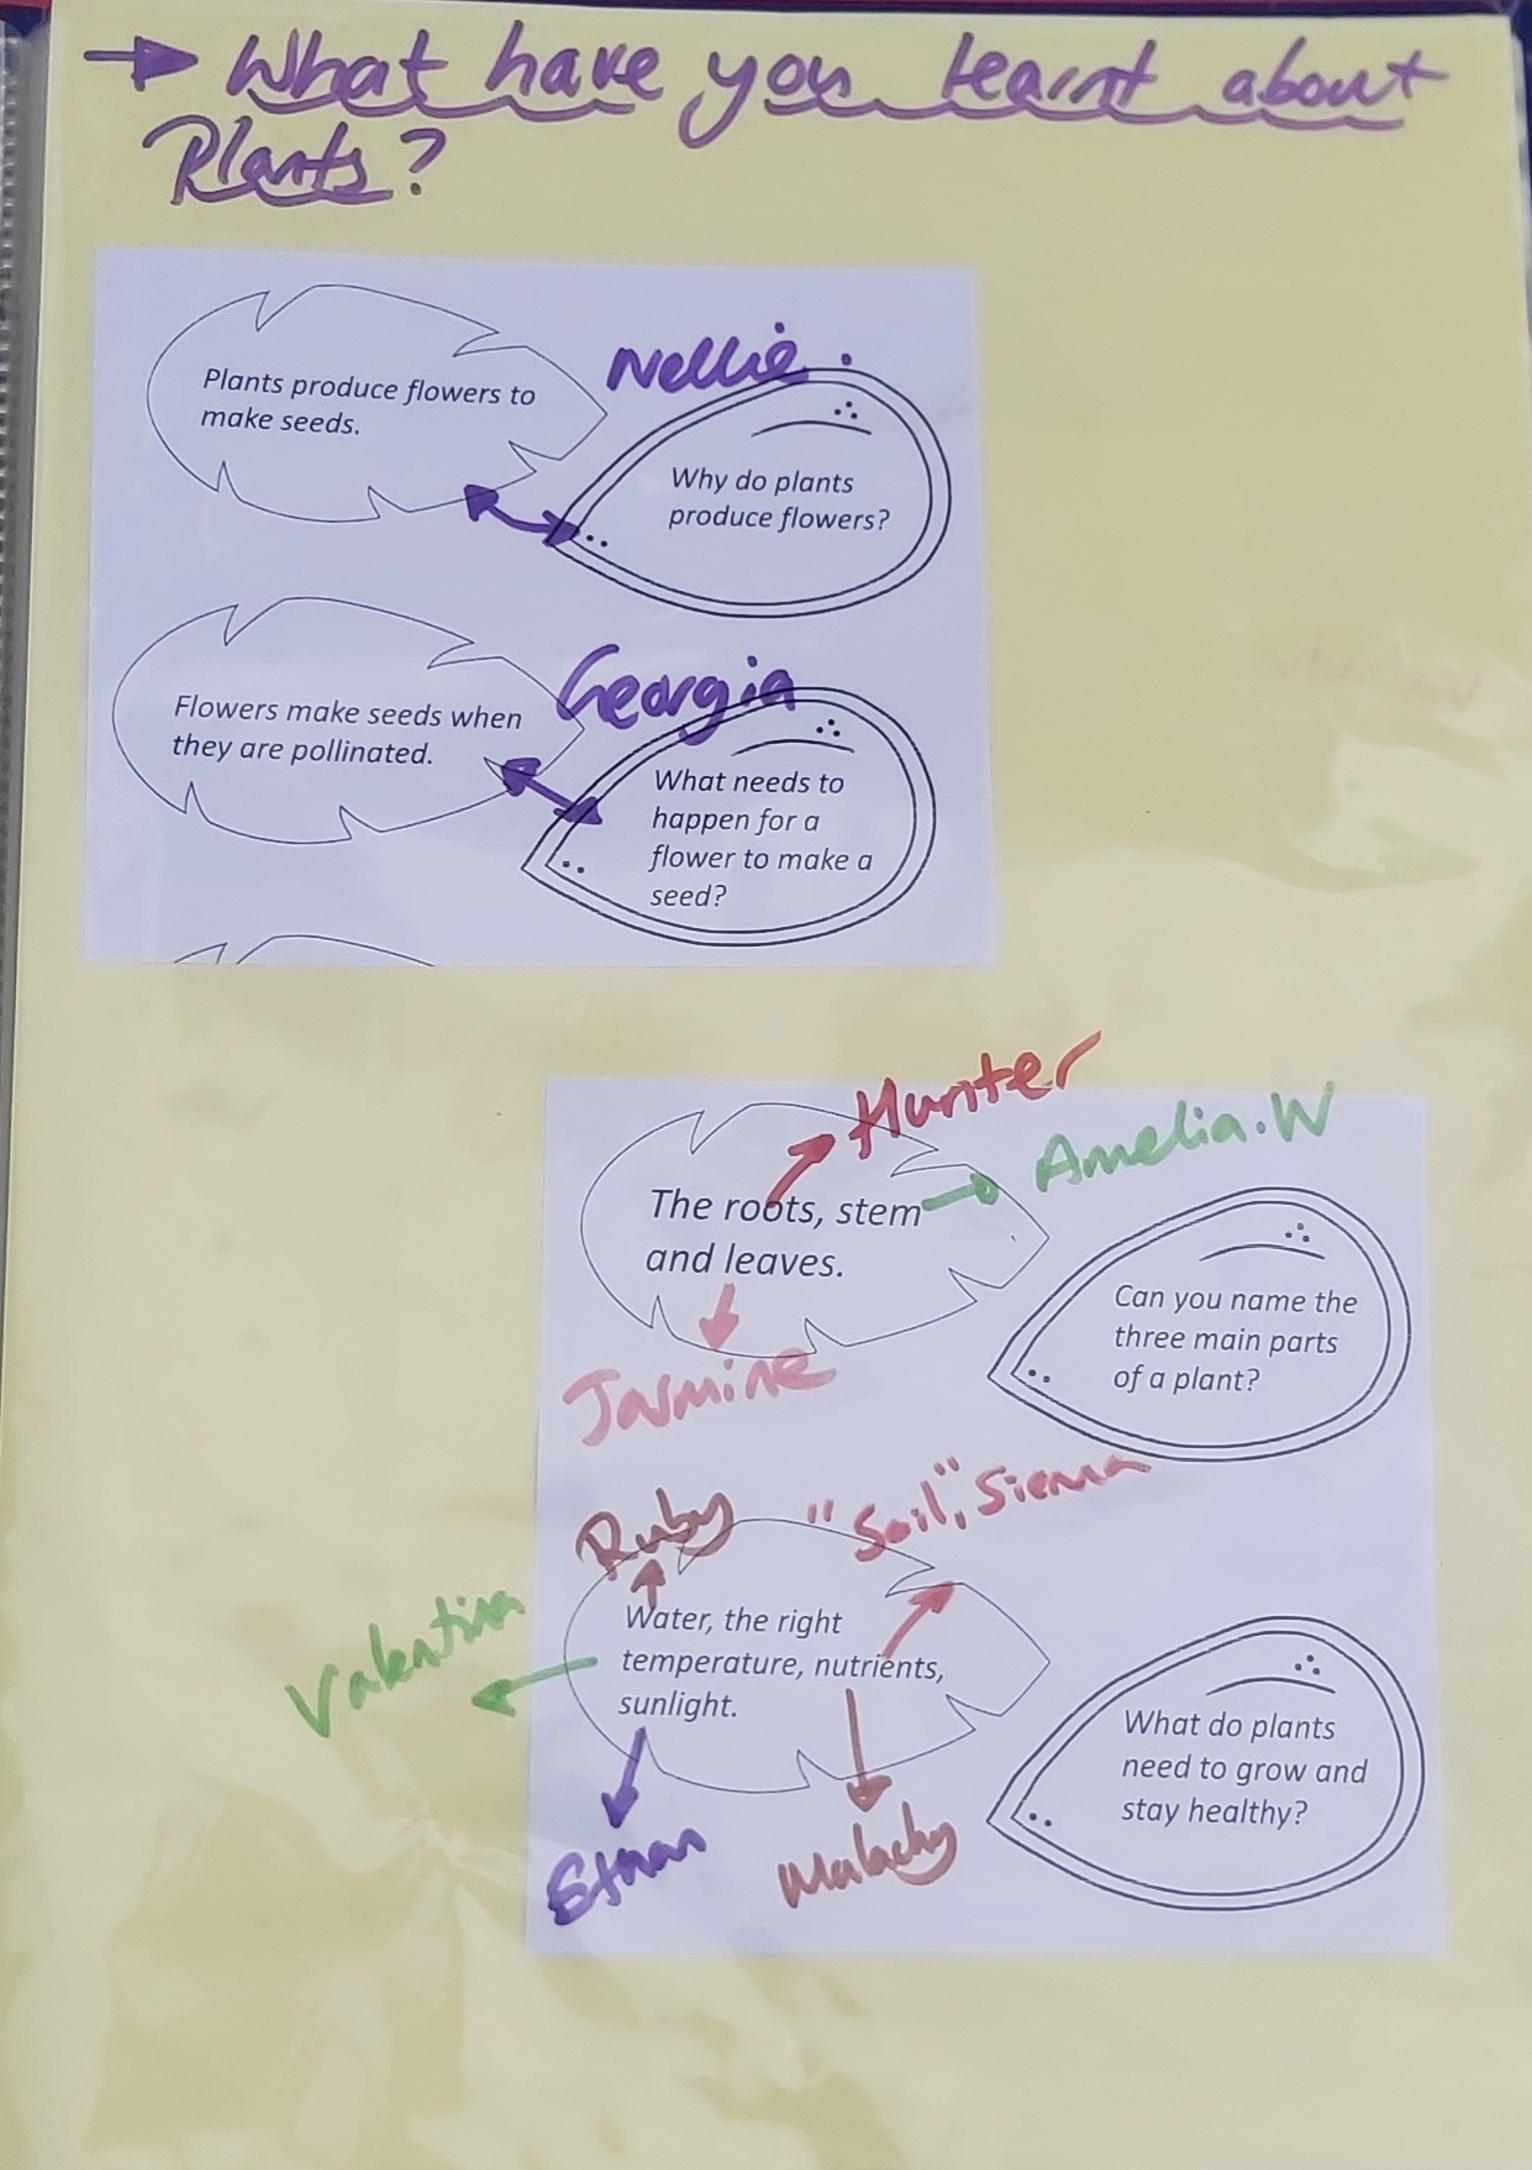 What have you learnt about
Plants?
Nellie.
Plants produce flowers to
make seeds.
Why do plants
produce flowers?
Georgia
Flowers make seeds when
they are pollinated.
What needs to
happen for a
flower to make a
seed?
Hunter
Amelia.W
The roots, stem
and leaves.
Jasmine
Can you name the
three main parts
of a plant?
Ruby
"Soil", Sienna
Valentina
Water, the right
temperature, nutrients,
sunlight.
Ethan
Malachy
What do plants
need to grow and
stay healthy?